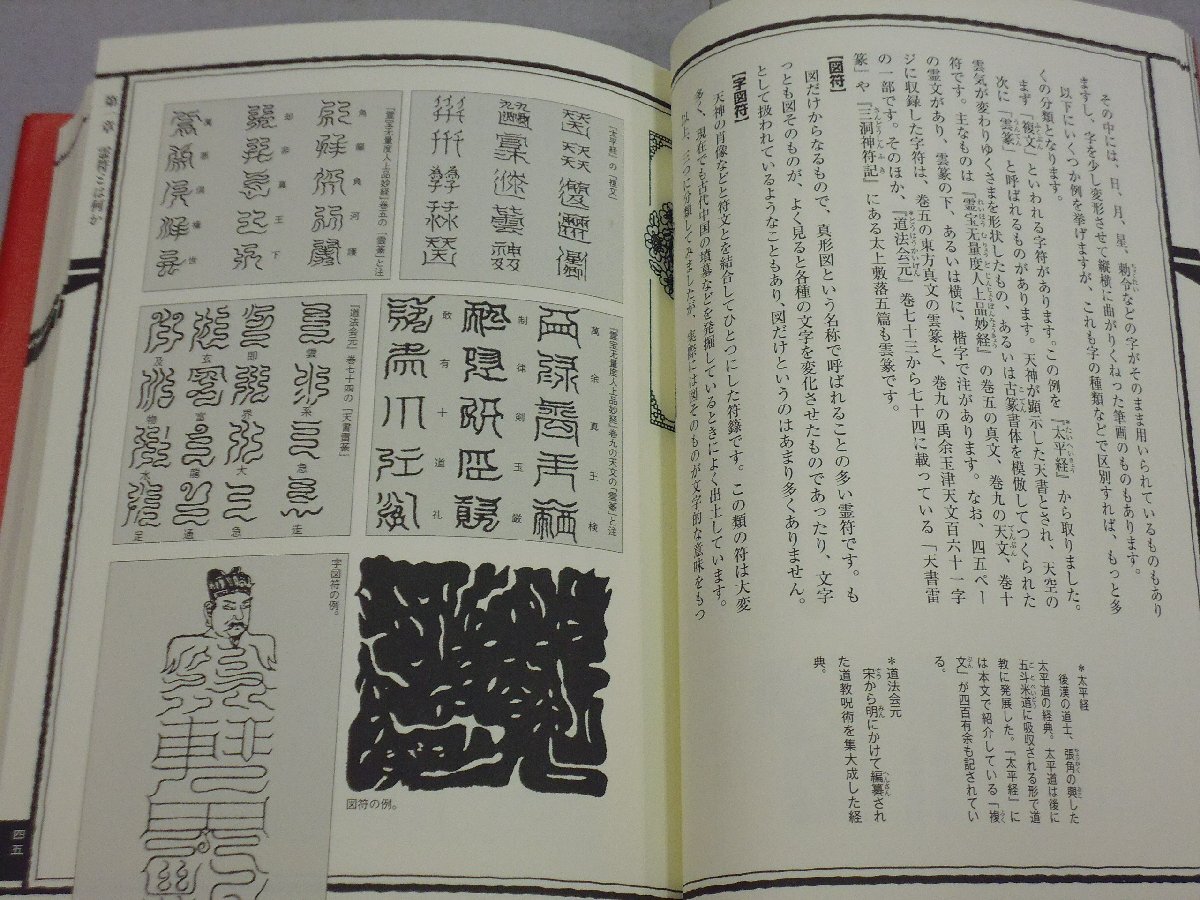 その中には、日、月、星、勅令などの字がそのまま用いられているものもあり
ますし、字を少し変形させて縦横に曲がりくねった筆画のものもあります。
以下にいくつか例を挙げますが、これも字の種類などで区別すれば、もっと多
くの分類となります。
まず「複文」といわれる字符があります。この例を『太平経』から取りました。
次に「雲篆」と呼ばれるものがあります。天神が顕示した天書とされ、天空の
雲気が変わりゆくさまを形状したもの、あるいは古篆書体を模倣してつくられた
符です。主なものは『霊宝无量度人上品妙経』の巻五の真文、巻九の天文、巻十
の霊文があり、雲篆の下、あるいは横に、楷字で注があります。なお、四五ペー
ジに収録した字符は、巻五の東方真文の雲篆と、巻九の禹余玉津天文百六十一字
の一部です。そのほか、『道法会元』巻七十三から七十四に載っている「天書雷
篆」や『三洞神符記』にある太上敷落五篇も雲篆です。
【図符】
図だけからなるもので、真形図という名称で呼ばれることの多い霊符です。も
っとも図そのものが、よく見ると各種の文字を変化させたものであったり、文字
として扱われているようなこともあり、図だけというのはあまり多くありません。
【字図符】
天神の肖像などと符文とを結合してひとつにした符籙です。この類の符は大変
多く、現在でも古代中国の墳墓などを発掘しているときによく出土しています。
以上、三つに分類してみましたが、実際には図そのものが文字的な意味をもつ
＊太平経
後漢の道士、張角の興した
太平道の経典。太平道は後に
五斗米道に吸収される形で道
教に発展した。『太平経』に
は本文で紹介している「複
文」が四百有余も記されてい
る。
＊道法会元
宋から明にかけて編纂され
た道教呪術を集大成した経
典。
『太平経』の「複文」
『霊宝无量度人上品妙経』巻五の「雲篆」と注
『霊宝无量度人上品妙経』巻九の天文の「雲篆」と注
萬 余 真 王 検
制 律 剣 玉 厳
敢 有 十 道 礼
『道法会元』巻七十四の「天書雷篆」
雲 系 急 走
即 界 大 急
玄 富 龍 通
及 物 水 足
図符の例。
字図符の例。
第一章 霊符とは何か
四五